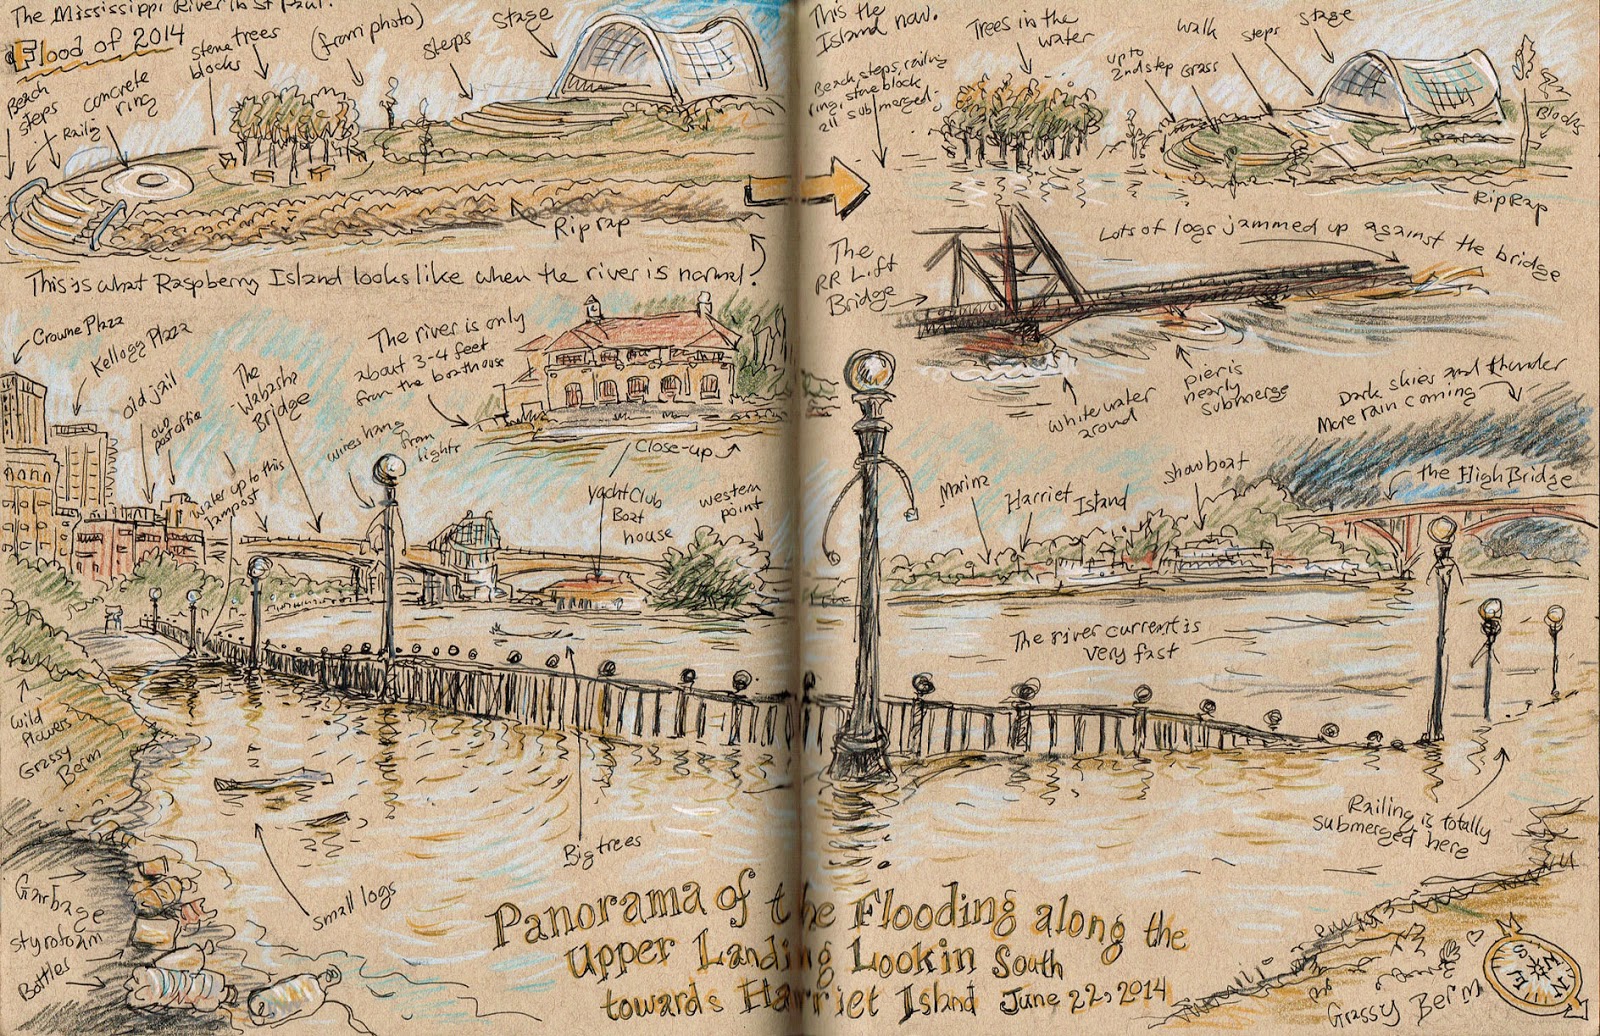 The Mississippi River in St Paul.
Flood of 2014
stone
blocks
trees
(from photo)
steps
stage
Beach
steps
Railing
concrete
ring
Rip rap
This is what Raspberry Island looks like when the river is normal.
This the
Island now.
Beach, steps, railing
ring, stone block
all submerged.
Trees in the
water
up to
2nd step
Grass
walk
steps
stage
Blocks
RipRap
The
RR Lift
Bridge
Lots of logs jammed up against the bridge
white water
around
pier is
nearly
submerge
Dark skies and thunder
More rain coming
the High Bridge
Crowne Plaza
Kellogg Plaza
old jail
old
post office
The
Wabasha
Bridge
The river is only
about 3-4 feet
from the boathouse
wires hang
from
lights
Close-up
water up to this
lampost
Yacht Club
Boat
house
western
point
Marina
Harriet Island
showboat
The river current is
very fast
Wild
flowers
Grassy
Berm
small logs
Big trees
Railing is totally
submerged here
Garbage
styrofoam
Bottles
Panorama of the Flooding along the
Upper Landing Lookin South
towards Harriet Island June 22, 2014
Grassy Berm
N
E
S
W